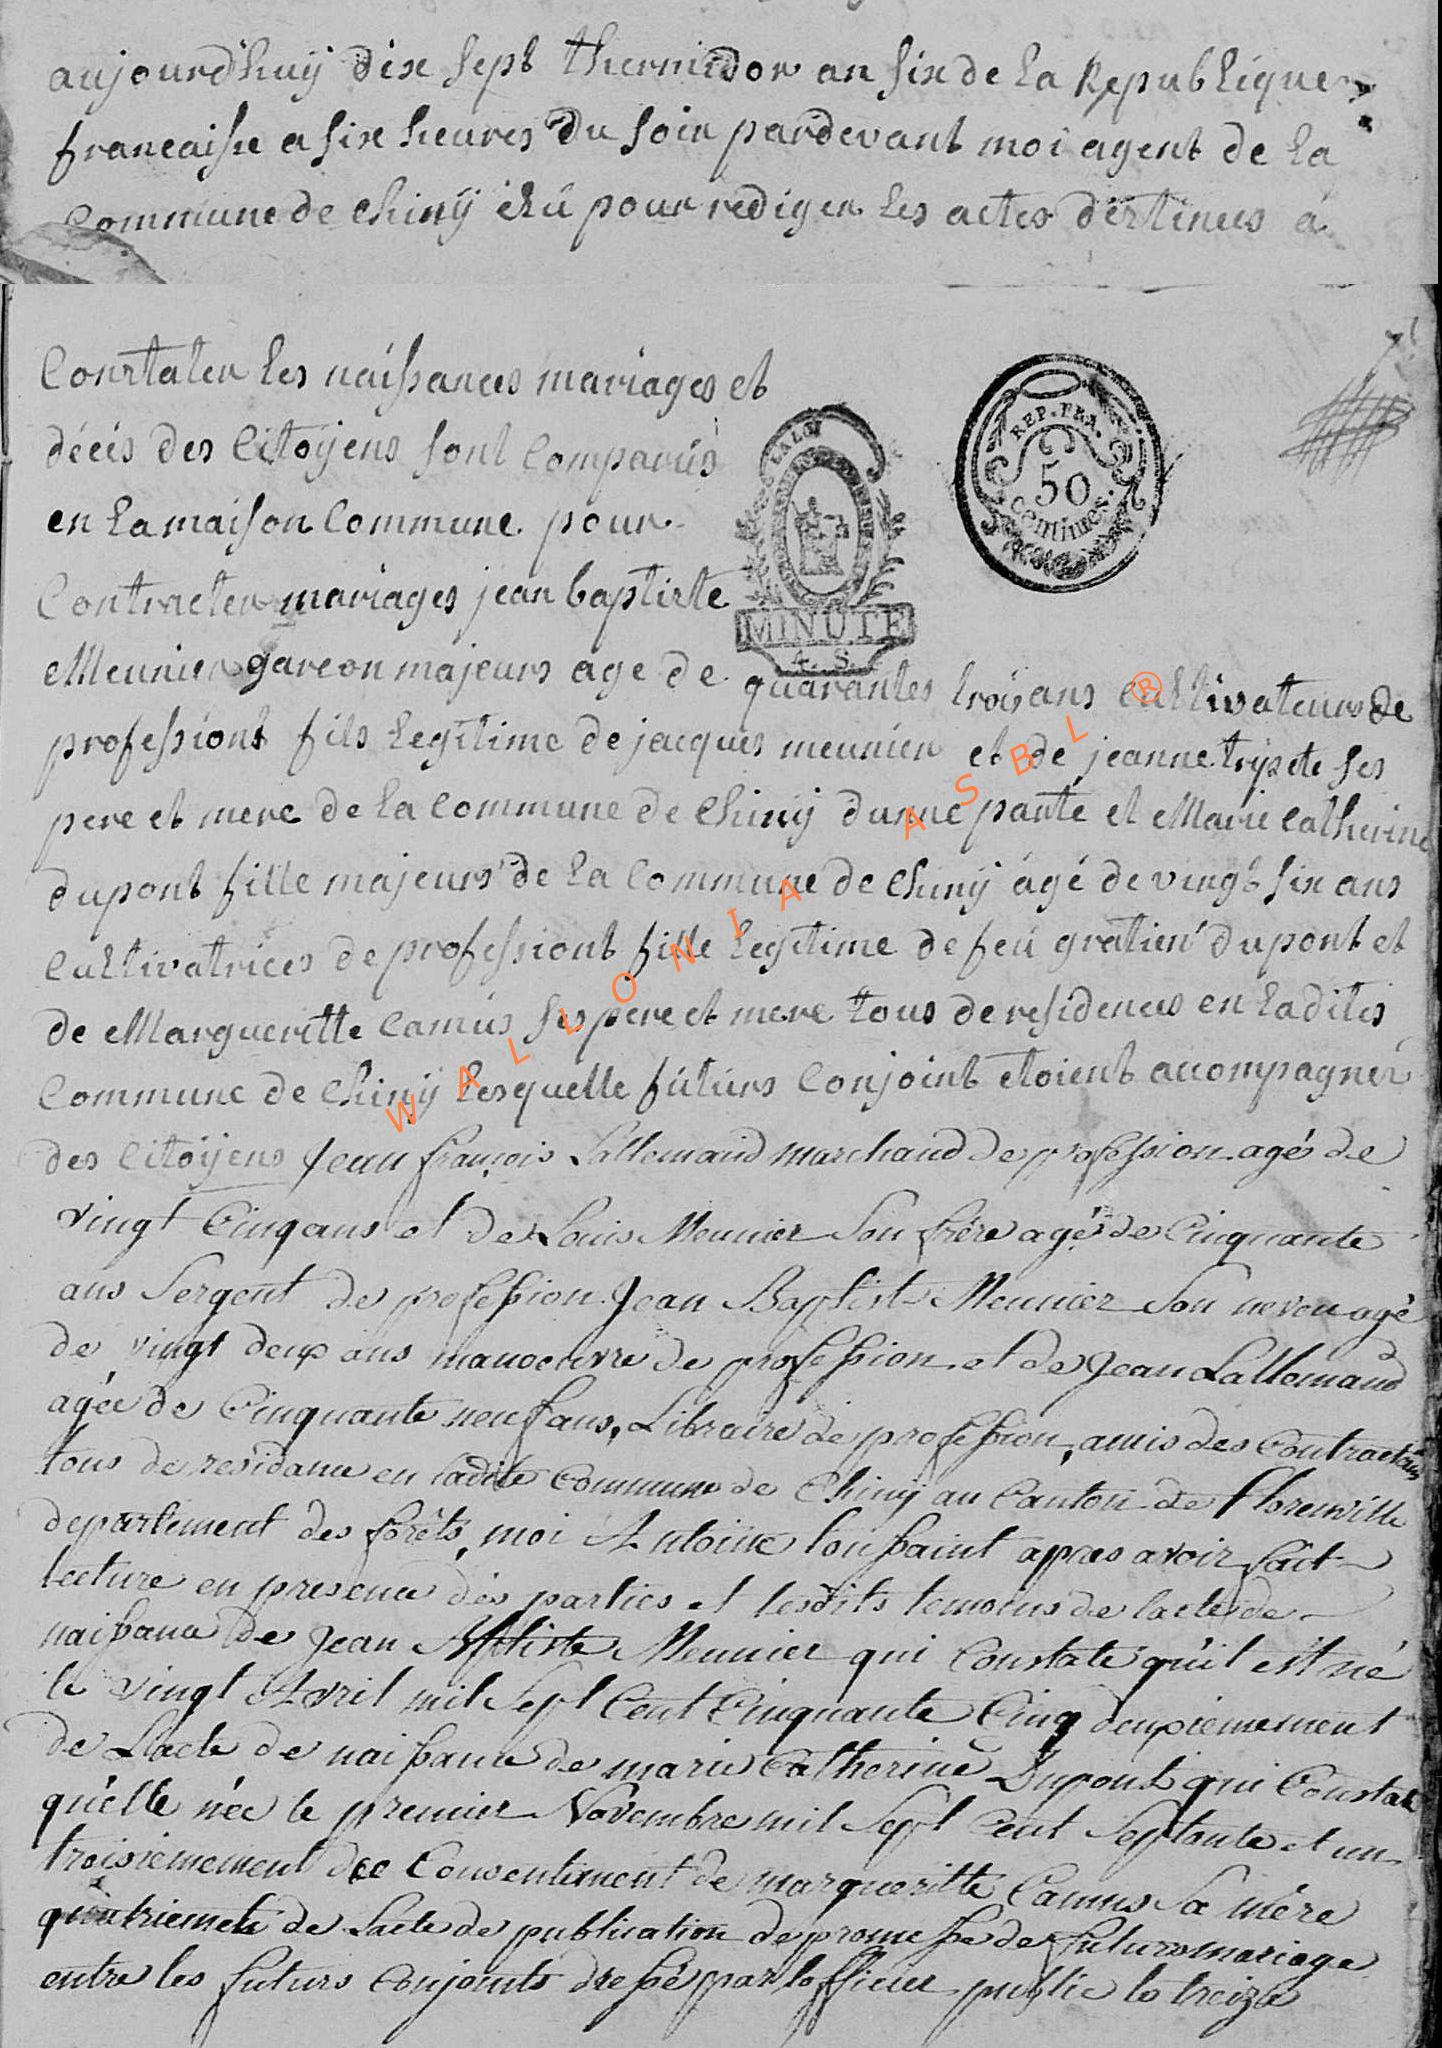 aujourdhuÿ dix sept thermidor an six de la Republique
francaisse a six heures du soir pardevant moi agent de la
Commune de Chinÿ élû pour rediger les actes destinees á
Constater les naissances mariages et
décès des Citoÿens sont Comparús
en la maison Commune pour
Contracter mariages jean baptiste
LA LOI
MINUTE
4. S.
REP. FRA.
50
Centimes.
Meunier garcon majeurs age de quarantes trois ans Cultivateurs de
professiont fils legitime de jacques meunier et de jeanne
pere et mere de la Commune de Chinÿ dunne parte et Marie Catherine
dupont fille majeurs de la Commune de Chinÿ ágé de vingt six ans
Cultivatrices de professiont fille legitime de feú gratien dupont et
de Margueritte Camús ses pere et mere tous de residences en ladites
Commune de Chinÿ lesquelle fúturs Conjoint etoient accompagner
des Citoÿens Jean françois Lallemand marchand de profession agé de
vingt Cinq ans et de Louis Meunier son frère agé de Cinquante
ans Sergent de profession Jean Baptist Meunier son neveu agé
de vingt deux ans manoeuvre de profession et de Jean Lallemand
agée de Cinquante neuf ans, Libraire de profession, amis des Contractans
tous de residance en ladite Commune de Chinÿ au Canton de florenville
departement des forêts, moi Antoine toussaint apres avoir fait
lecture en presence des parties et lesdits temoins de lacte de
naissance de Jean Baptiste Meunier qui Constate qu'il est né
le vingt Avril mil Sept Cent Cinquante Cinq deuxiemement
de Lacte de naissance de marie Catherine Dupont qui Constate
quelle née le premier Novembre mil Sept Cent Septante et un
troisiemement de Consentiment de marqueritte Camus Sa mére
quatriemele de Lacte de publication de promesse de futurs mariage
entre les futurs Conjoints dressé par lofficier public le treize
WALLONIA ASBL ®